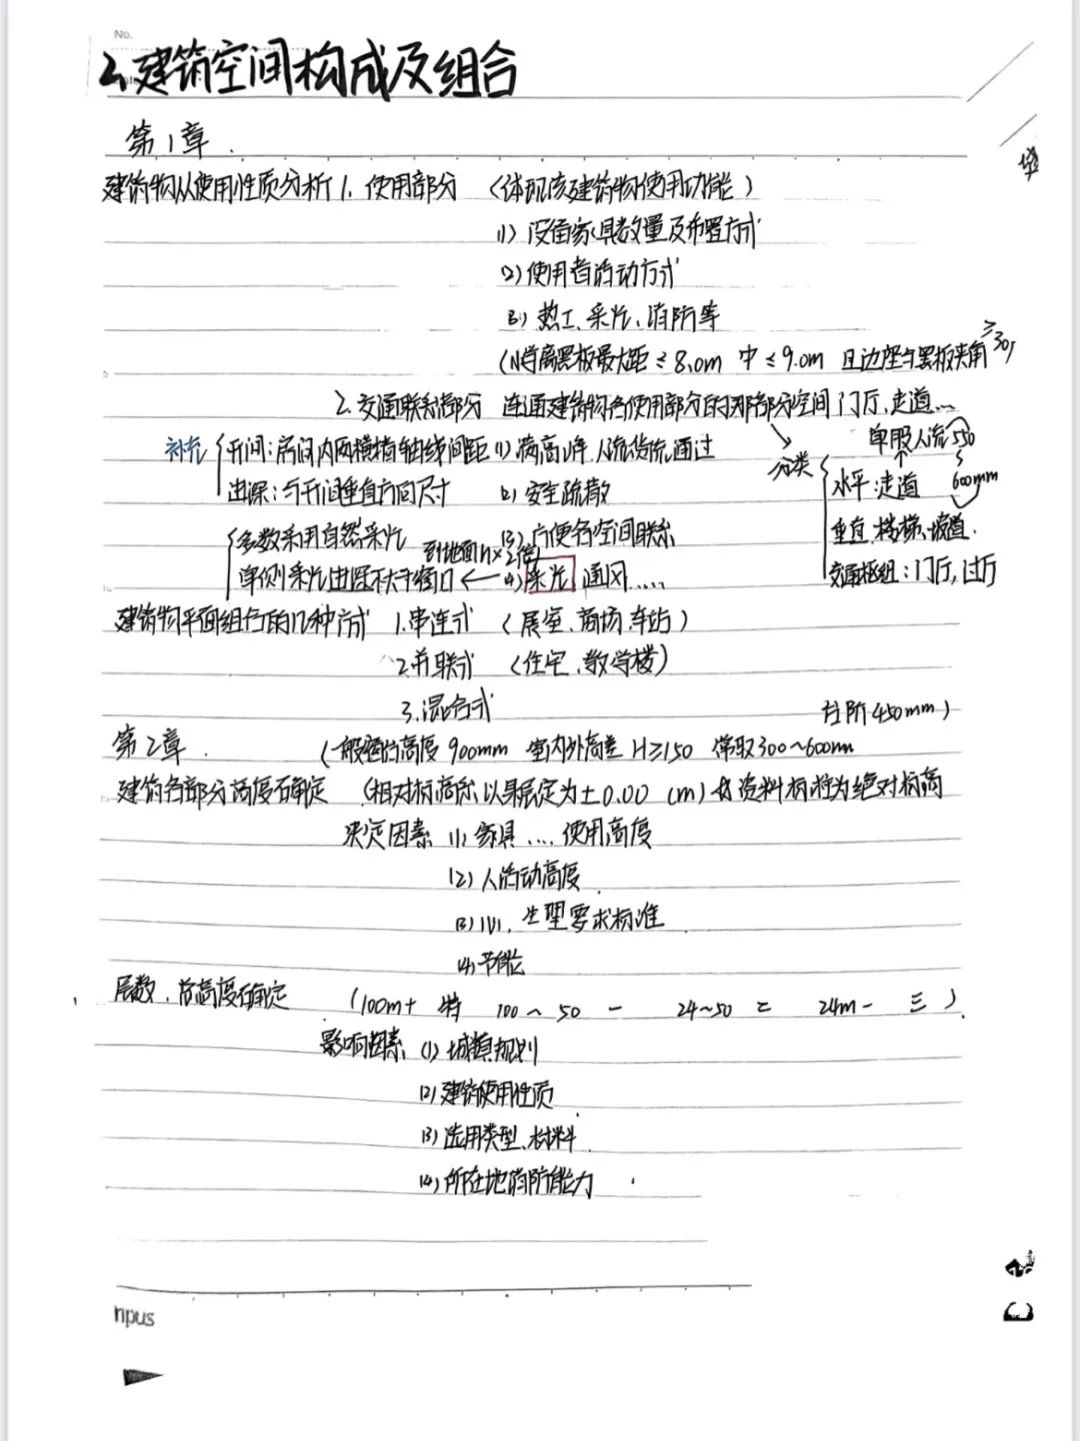 No.
2、建筑空间构成及组合
第1章.
建筑物从使用性质分析 1. 使用部分 (体现该建筑物使用功能)
(1) 设备家具数量及布置方式
(2) 使用者活动方式
(3) 热工、采光、消防等
(小学离黑板最大距≤8.0m 中≤9.0m 且边座与黑板夹角≥30)
2. 交通联系部分 连通建筑物各使用部分的那部分空间 门厅、走道…
补充 开间:房间内两横墙轴线间距 (1) 满高峰人流货流通过
进深:与开间垂直方向尺寸 (2) 安全疏散
多数采用自然采光 (3) 方便各空间联系
单侧采光进深不大于窗口到地面h×2倍 ← (4) 采光、通风....
分类 水平:走道
单股人流550~600mm
垂直:楼梯、坡道.
交通枢纽:门厅,过厅
建筑物平面组合的几种方式 1.串连式 (展室、商场、车站)
2.并联式 (住宅、教学楼)
3.混合式
第2章. (一般窗台高度 900mm 室内外高差 H≥150 常取300~600mm 台阶450mm)
建筑各部分高度确定 (相对标高以首层定为±0.00 (m) 资料标将为绝对标高
决定因素 (1) 家具.... 使用高度
(2) 人活动高度
(3) 生理要求标准
(4) 节能
层数、总高度确定 (100m+ 特 100~50 一 24~50 二 24m- 三).
影响因素 (1) 城镇规划
(2) 建筑使用性质
(3) 选用类型、材料
(4) 所在地消防能力.
mpus